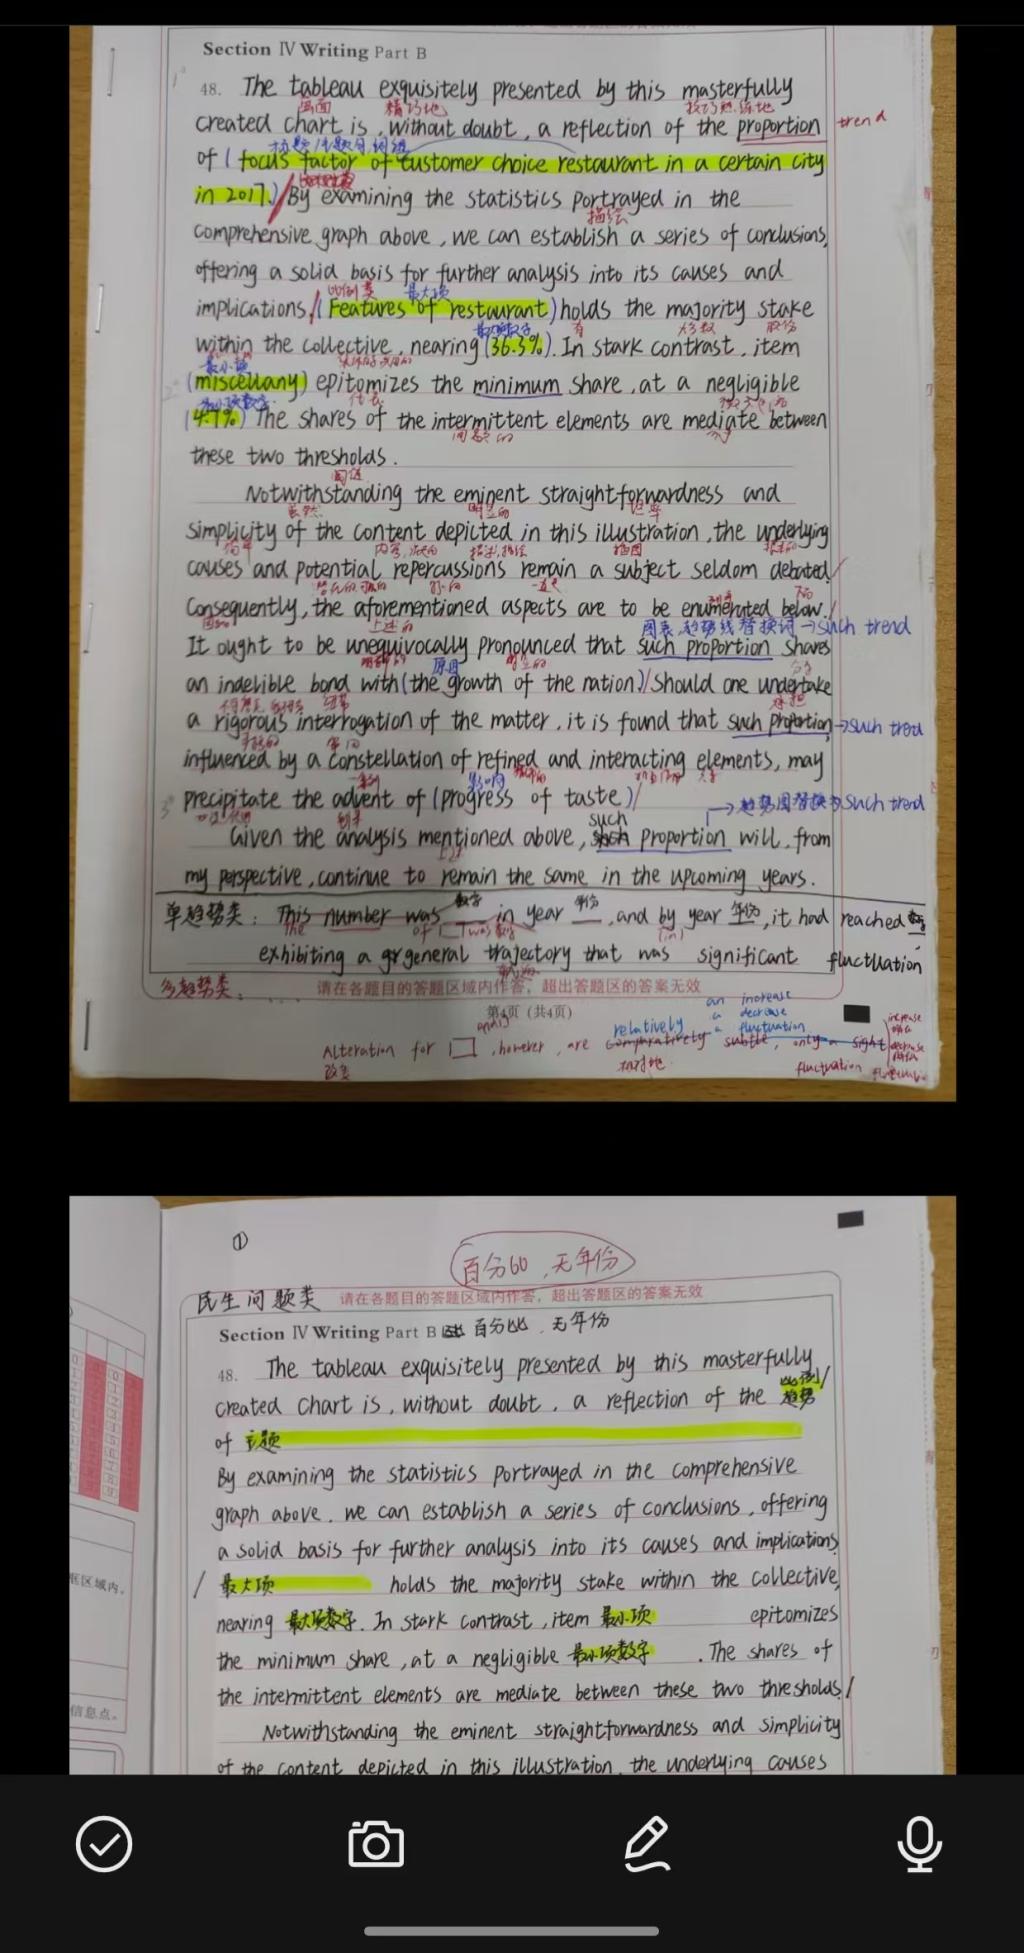 Section Ⅳ Writing Part B
48. The tableau exquisitely presented by this masterfully
画面 精巧地 技巧熟练地
created chart is, without doubt, a reflection of the proportion trend
of (focus factor of customer choice restaurant in a certain city
in 2017.) / By examining the statistics portrayed in the
描绘
comprehensive graph above, we can establish a series of conclusions,
offering a solid basis for further analysis into its causes and
implications. / 比例类 最大项
(Features of restaurant) holds the majority stake
有 大多数 股份
within the collective, nearing (36.3%). In stark contrast, item
最小项
(miscellany) epitomizes the minimum share, at a negligible
最小项数字 代表
(4.7%) The shares of the intermittent elements are mediate between
间歇的
these two thresholds.
阈值
Notwithstanding the eminent straightforwardness and
虽然 明显的 坦率
simplicity of the content depicted in this illustration, the underlying
简单 描述,描绘 插图
causes and potential repercussions remain a subject seldom debated/
Consequently, the aforementioned aspects are to be enumerated below./
上述的 图表,趋势线替换词→such trend
It ought to be unequivocally pronounced that such proportion shares
原因 明显的
an indelible bond with (the growth of the nation) / Should one undertake
纽带 承担
a rigorous interrogation of the matter, it is found that such proportion →such trend
审问
influenced by a constellation of refined and interacting elements, may
一系列 影响
precipitate the advent of (progress of taste) /
到来 →趋势图替换为such trend
such
Given the analysis mentioned above, such proportion will, from
my perspective, continue to remain the same in the upcoming years.
单趋势类: This number was 数字 in year 年份, and by year 年份, it had reached
exhibiting a general trajectory that was significant fluctuation
多趋势类: .... 请在各题目的答题区域内作答，超出答题区的答案无效
第4页 (共4页)
an increase
a decrease
relatively a fluctuation
Alteration for □, however, are comparatively subtle, only a slight
改变 相对地 fluctuation
①
百分比,无年份
民生问题类 请在各题目的答题区域内作答，超出答题区的答案无效
Section Ⅳ Writing Part B 百分比,无年份
48. The tableau exquisitely presented by this masterfully
比例/
created chart is, without doubt, a reflection of the 趋势
of 主题
By examining the statistics portrayed in the comprehensive
graph above, we can establish a series of conclusions, offering
a solid basis for further analysis into its causes and implications
/ 最大项 holds the majority stake within the collective,
nearing 最大项数字. In stark contrast, item 最小项 epitomizes
the minimum share, at a negligible 最小项数字. The shares of
the intermittent elements are mediate between these two thresholds./
Notwithstanding the eminent straightforwardness and simplicity
of the content depicted in this illustration, the underlying causes
框区域内。
信息点。